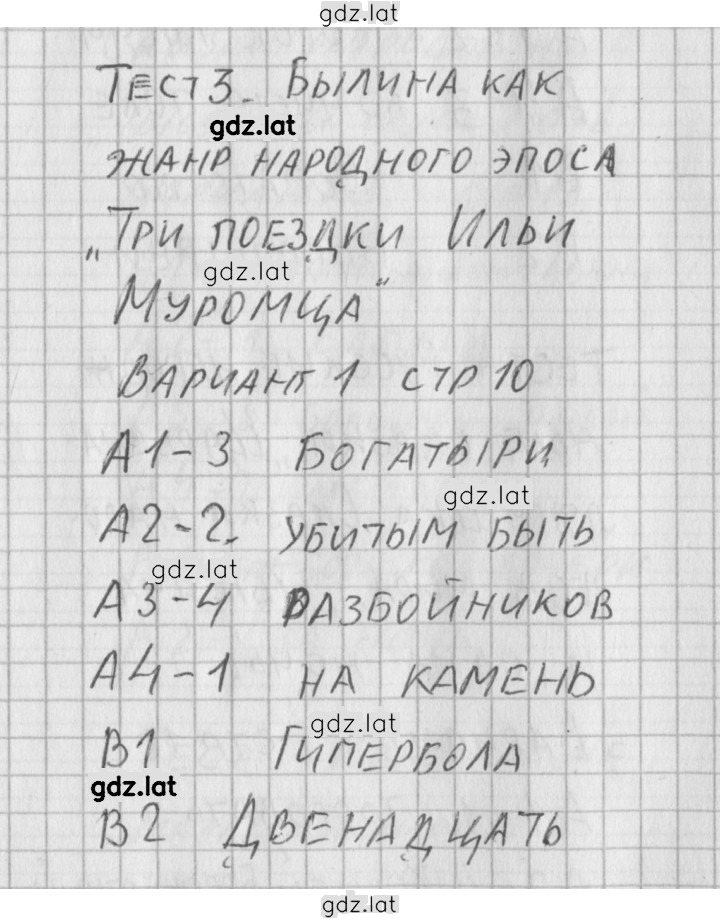 gdz.lat
Тест 3. Былина как
gdz.lat
жанр народного эпоса
„Три поездки Ильи
gdz.lat
Муромца"
Вариант 1 стр 10
А1-3 Богатыри
gdz.lat
А2-2. убитым быть
gdz.lat
А3-4 разбойников
А4-1 на камень
gdz.lat
В1 Гипербола
gdz.lat
В2 Двенадцать
gdz.lat